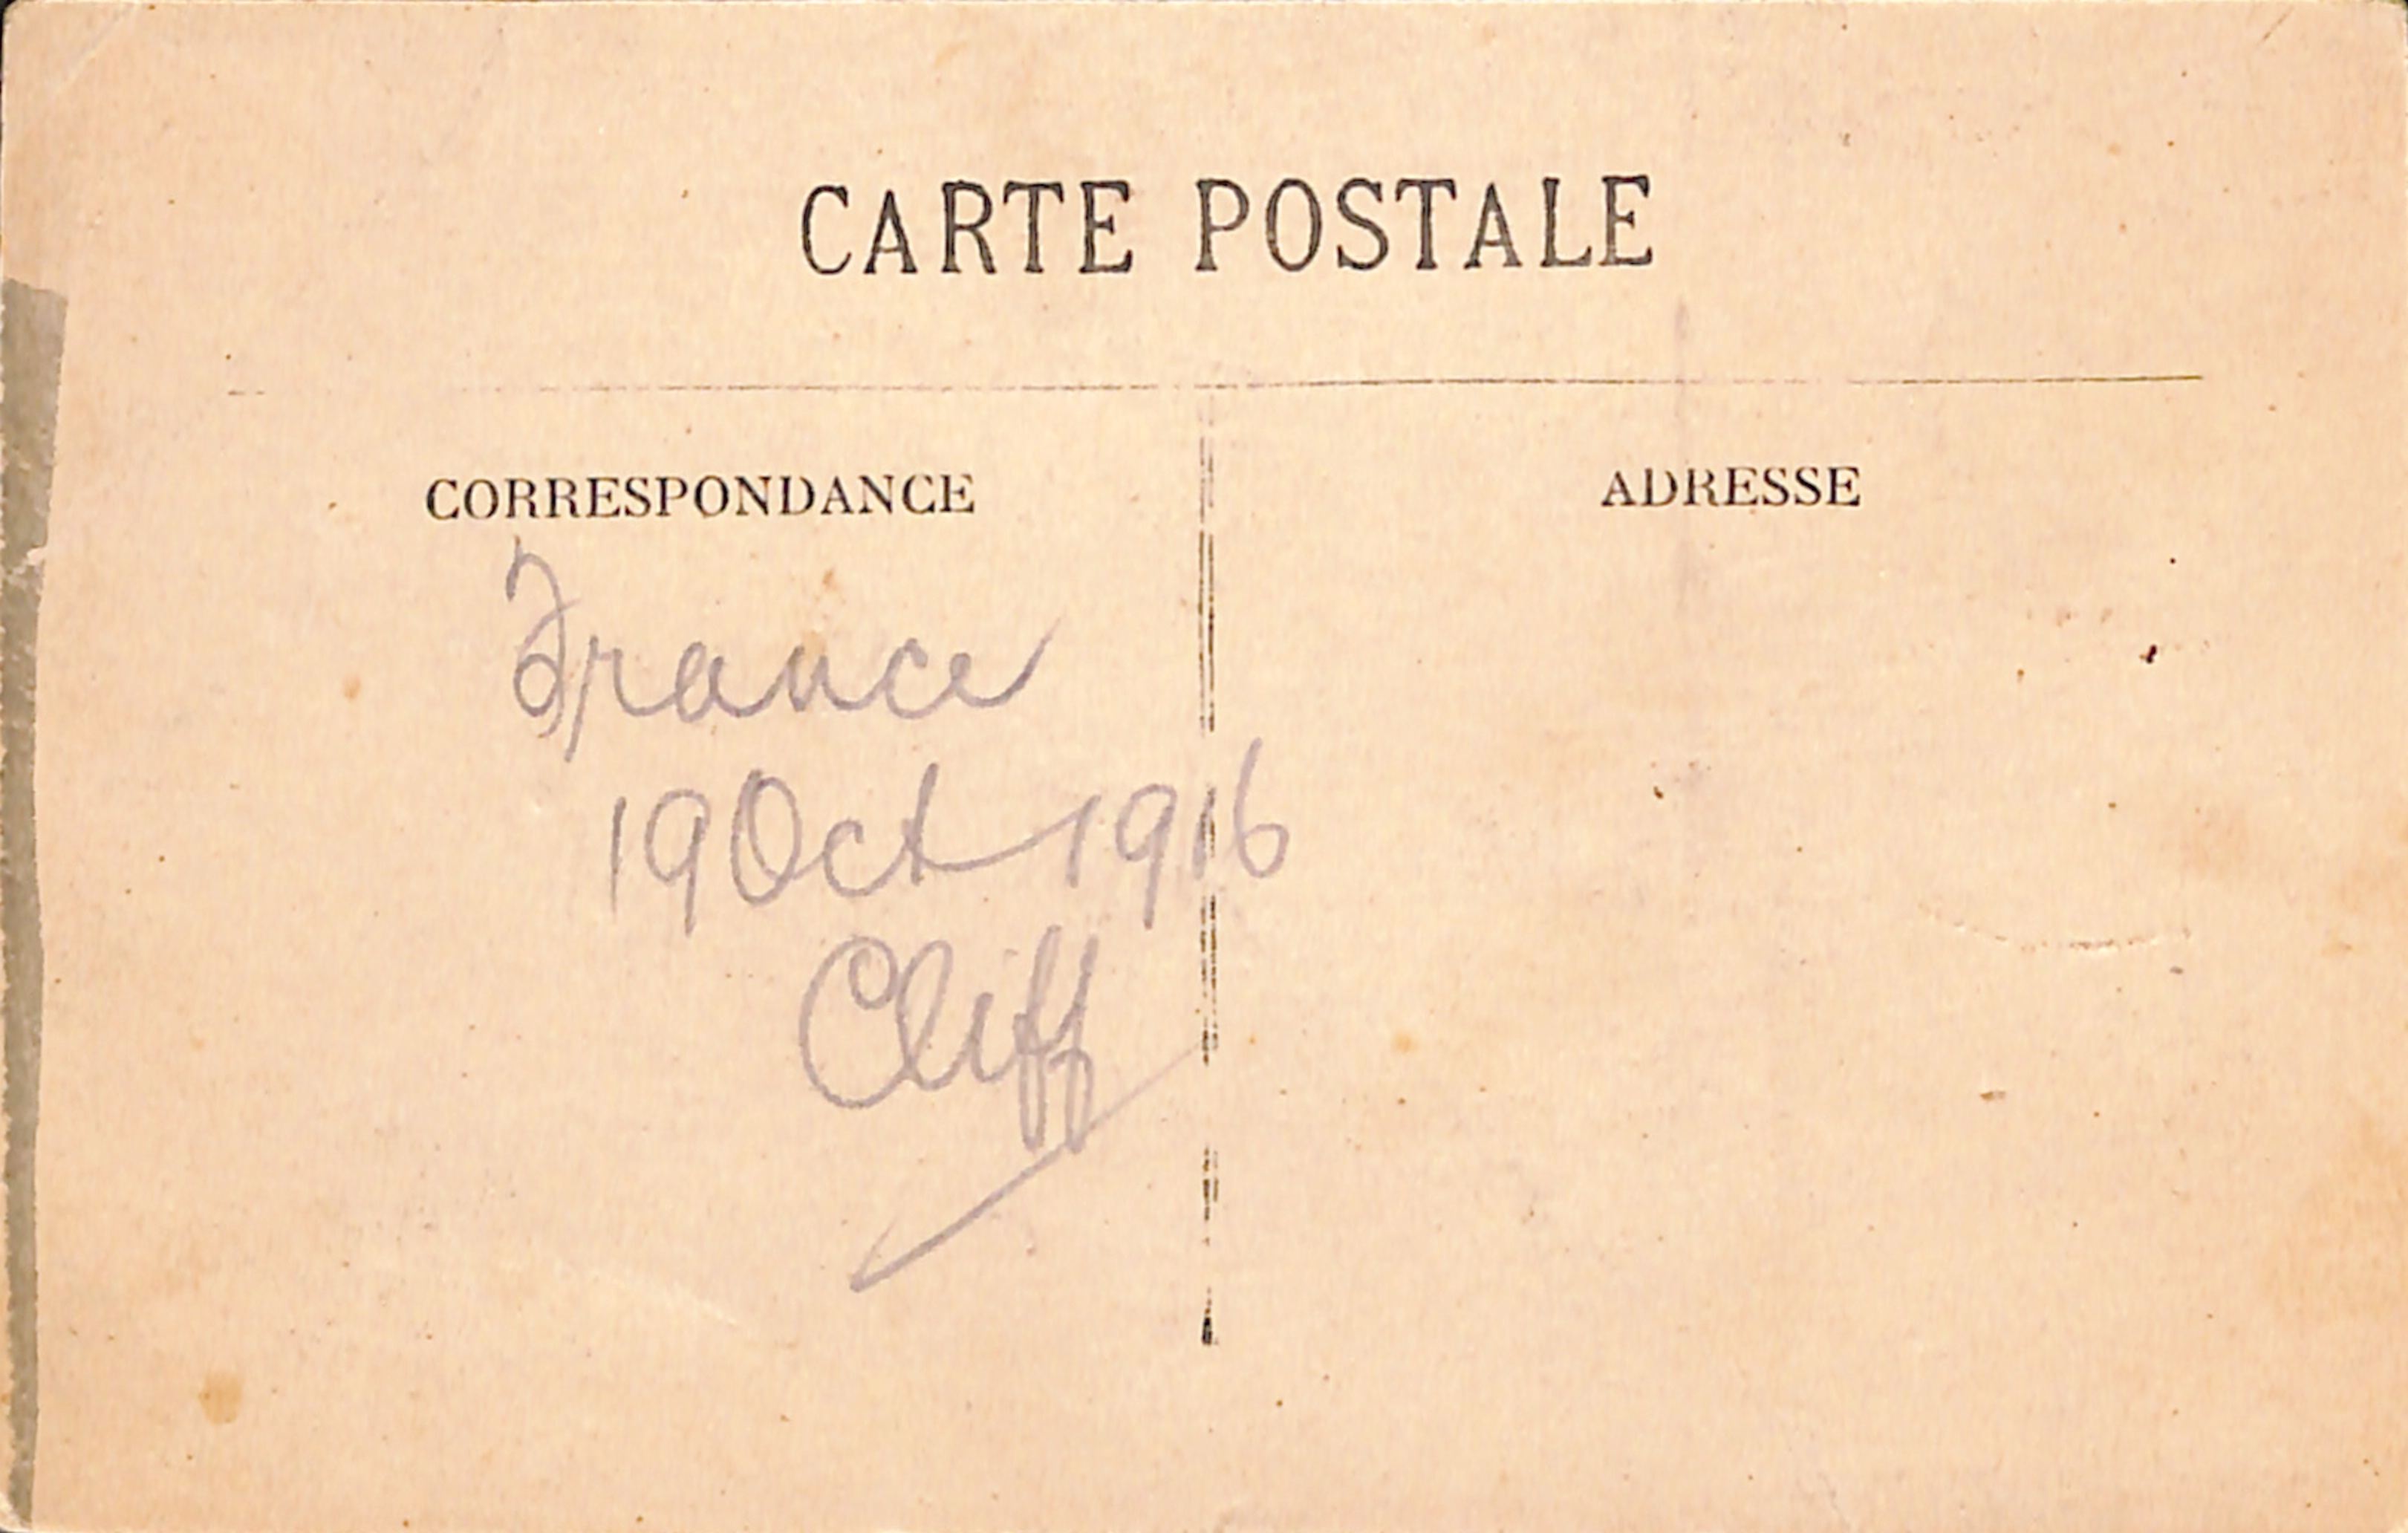 CARTE POSTALE
CORRESPONDANCE
ADRESSE
France
19 Oct 1916
Cliff